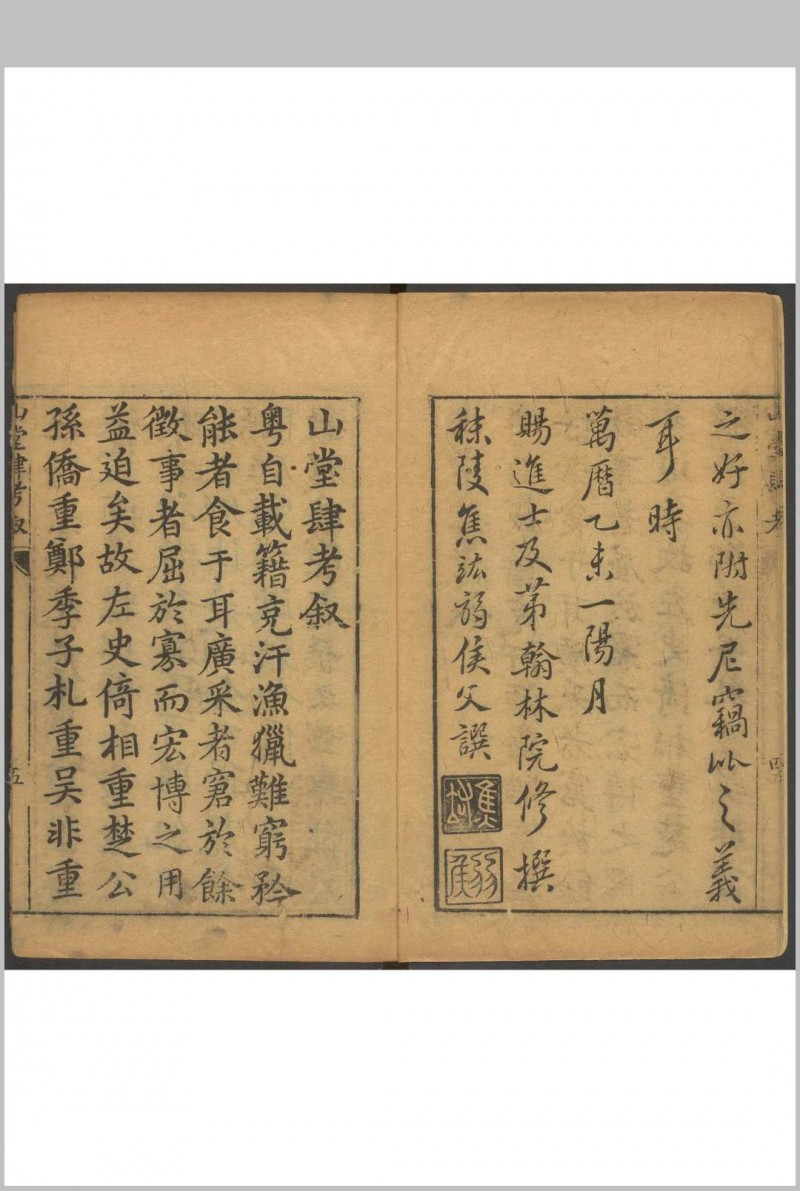 之好亦附先尼竊比之義
耳時
萬曆乙未一陽月
賜進士及苐翰林院修撰
秣陵焦竑弱侯父譔
焦竑
弱侯
山堂肆考叙
粤自載籍克汗漁獵難窮矜
能者食于耳廣采者窘於餘
徵事者屈於寡而宏博之用
益迫矣故左史倚相重楚公
孫僑重鄭季子札重吴非重
山堂肆考叙
五